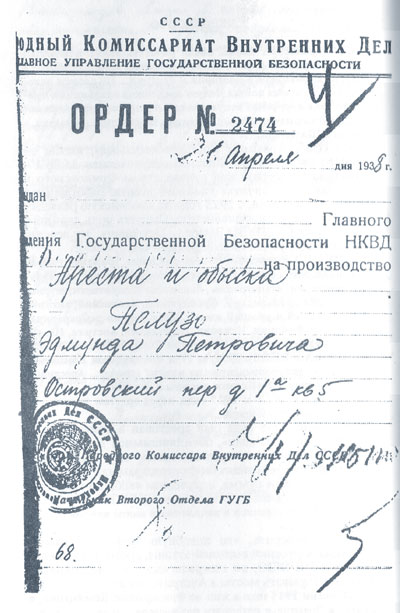 СССР
ОДНЫЙ КОМИССАРИАТ ВНУТРЕННИХ ДЕЛ
ЛАВНОЕ УПРАВЛЕНИЕ ГОСУДАРСТВЕННОЙ БЕЗОПАСНОСТИ
4
ОРДЕР № 2474
21. Апреля дня 1938 г.
дан
Главного
ления Государственной Безопасности НКВД
на производство
Ареста и обыска
Пелузо
Эдмунда Петровича
Островский пер д 1а кв 5
Народного Комиссара Внутренних Дел СССР
Начальник Второго Отдела ГУГБ
5
68.